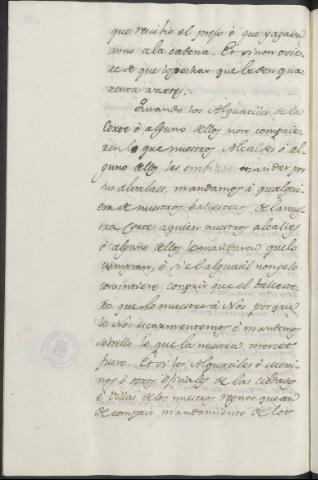 que recibió el preso é que yaga un
anno a la cadena. Et si non ovie-
re de que lo pechar que le den qua-
renta azotes.
Quando los Alguaciles de la
Corte ó alguno dellos non complie-
ren lo que nuestros Alcaldes ó al-
guno dellos les embiaren mandar por
sus alvalaes, mandamos á qualqui-
er de nuestros ballesteros de la nues-
tra Corte a quien nuestros alcalles
ó alguno dellos lo mandaren que lo
cumplan, é si el alguacil non gelo
consintiere complir que el balleste-
ro que lo muestre á Nos porque
lo Nos escarmentemos é mandemos
sobrello lo que la nuestra merced
fuere. Et si los Alguaciles ó meri-
nos ó otros oficiales de las cibdades
é villas de los nuestros regnos que an
de complir mandamiento de los